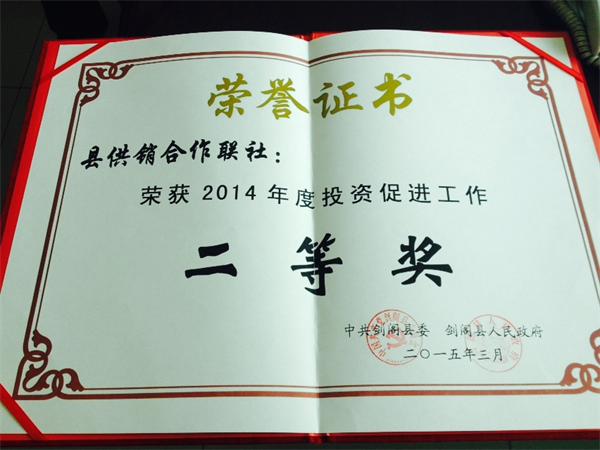 荣誉证书
县供销合作联社：
荣获2014年度投资促进工作
二等奖
中共剑阁县委 剑阁县人民政府
二〇一五年三月